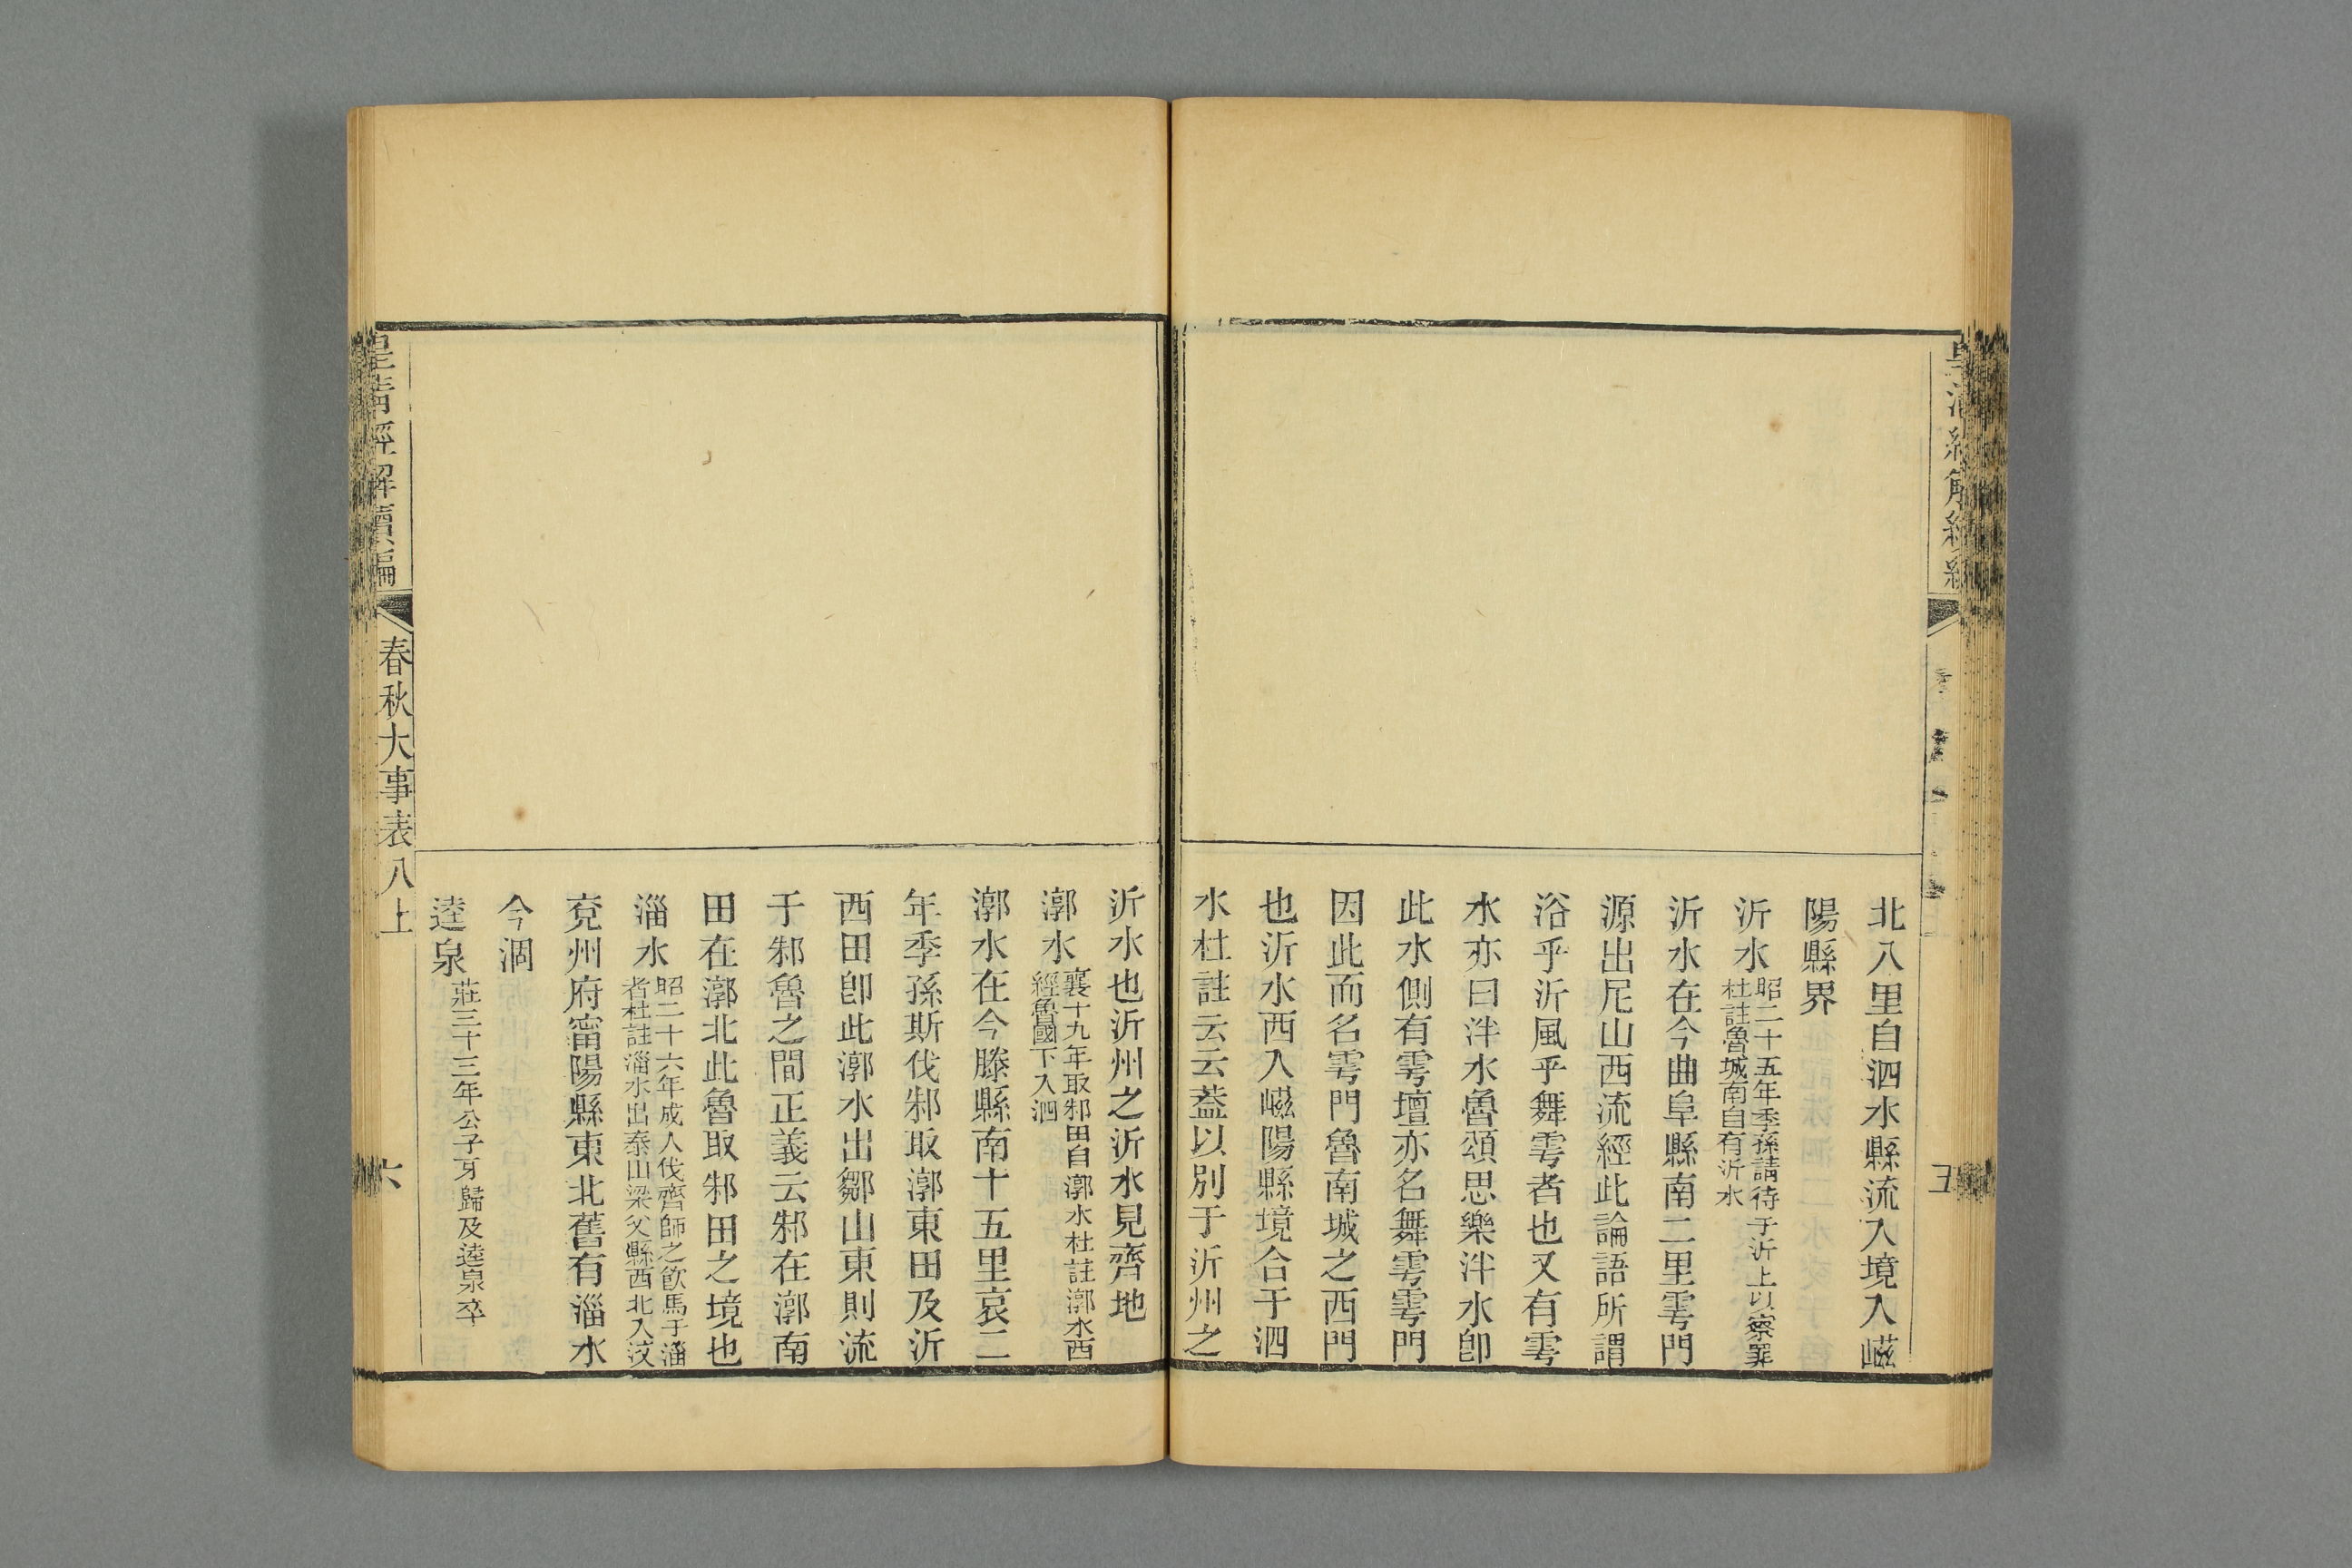 北八里自泗水縣流入境入嶫
陽縣界
沂水昭二十五年季孫請待于沂上以察罪
杜註魯城南自有沂水
沂水在今曲阜縣南二里雩門
源出尼山西流經此論語所謂
浴乎沂風乎舞雩者也又有雩
水亦曰泮水魯頌思樂泮水卽
此水側有雩壇亦名舞雩雩門
因此而名雩門魯南城之西門
也沂水西入嶫陽縣境合于泗
水杜註云云葢以別于沂州之
沂水也沂州之沂水見齊地
漷水襄十九年取邾田自漷水杜註漷水西
經魯國下入泗
漷水在今滕縣南十五里哀二
年季孫斯伐邾取漷東田及沂
西田卽此漷水出鄒山東則流
于邾魯之間正義云邾在漷南
田在漷北此魯取邾田之境也
淄水昭二十六年成人伐齊師之飮馬于淄
者杜註淄水出泰山梁父縣西北入汶
兗州府甯陽縣東北舊有淄水
今涸
逵泉莊三十三年公子牙歸及逵泉卒
皇淸經解續編
春秋大事表八上
六